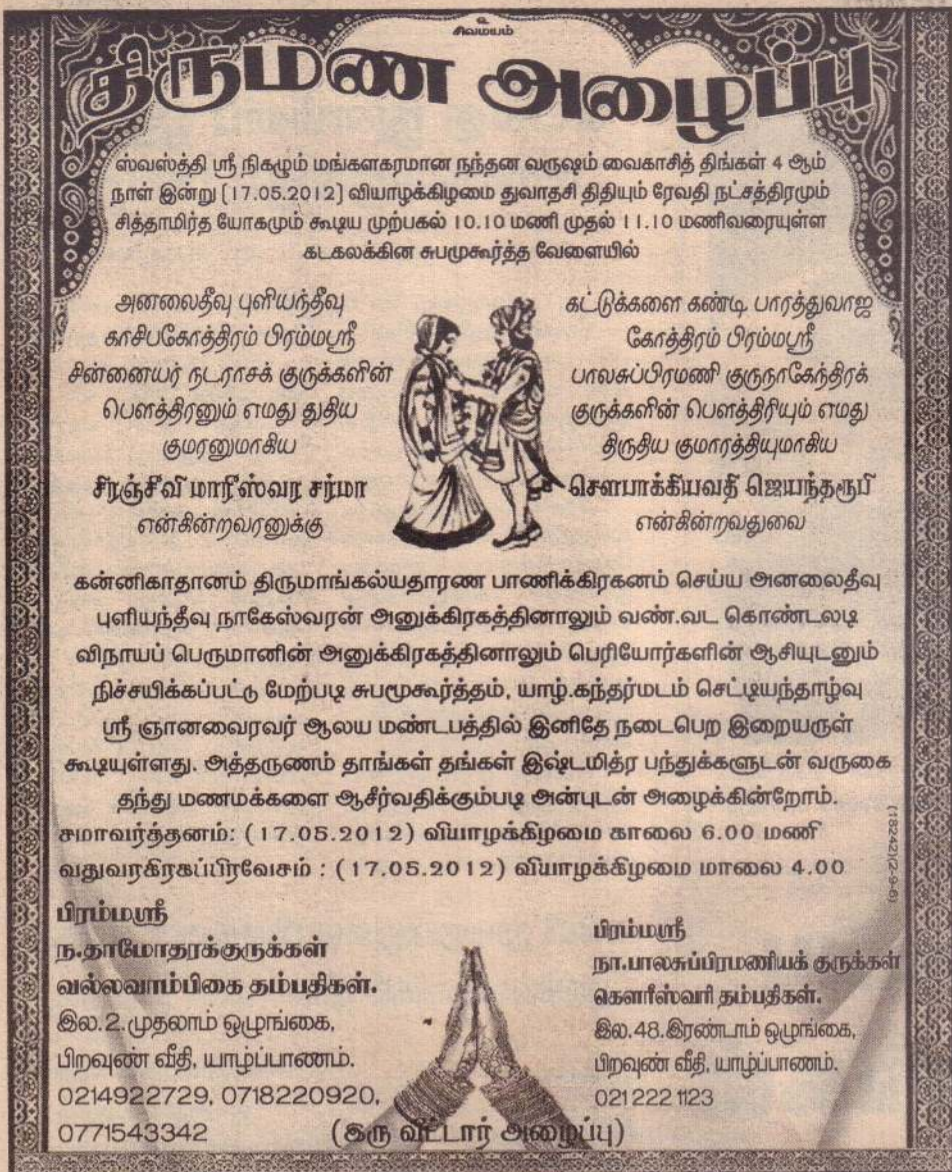 உ
சிவமயம்
திருமண அழைப்பு
ஸ்வஸ்த்தி ஸ்ரீ நிகழும் மங்களகரமான நந்தன வருஷம் வைகாசித் திங்கள் 4 ஆம்
நாள் இன்று (17.05.2012) வியாழக்கிழமை துவாதசி திதியும் ரேவதி நட்சத்திரமும்
சித்தாமிர்த யோகமும் கூடிய முற்பகல் 10.10 மணி முதல் 11.10 மணிவரையுள்ள
கடகலக்கின சுபமுகூர்த்த வேளையில்
அனலைதீவு புளியந்தீவு
காசிபகோத்திரம் பிரம்மஸ்ரீ
சின்னையர் நடராசக் குருக்களின்
பௌத்திரனும் எமது துதிய
குமரனுமாகிய
சிரஞ்சீவி மாரீஸ்வர சர்மா
என்கின்றவரனுக்கு
கட்டுக்களை கண்டி பாரத்துவாஜ
கோத்திரம் பிரம்மஸ்ரீ
பாலசுப்பிரமணி குருநாகேந்திரக்
குருக்களின் பௌத்திரியும் எமது
திருதிய குமாரத்தியுமாகிய
சௌபாக்கியவதி ஜெயந்தரூபி
என்கின்றவதுவை
கன்னிகாதானம் திருமாங்கல்யதாரண பாணிக்கிரகனம் செய்ய அனலைதீவு
புளியந்தீவு நாகேஸ்வரன் அனுக்கிரகத்தினாலும் வண்.வட கொண்டலடி
விநாயப் பெருமானின் அனுக்கிரகத்தினாலும் பெரியோர்களின் ஆசியுடனும்
நிச்சயிக்கப்பட்டு மேற்படி சுபமூகூர்த்தம், யாழ்.கந்தர்மடம் செட்டியந்தாழ்வு
ஸ்ரீ ஞானவைரவர் ஆலய மண்டபத்தில் இனிதே நடைபெற இறையருள்
கூடியுள்ளது. அத்தருணம் தாங்கள் தங்கள் இஷ்டமித்ர பந்துக்களுடன் வருகை
தந்து மணமக்களை ஆசீர்வதிக்கும்படி அன்புடன் அழைக்கின்றோம்.
சமாவர்த்தனம்: (17.05.2012) வியாழக்கிழமை காலை 6.00 மணி
வதுவரகிரகப்பிரவேசம் : (17.05.2012) வியாழக்கிழமை மாலை 4.00
(18242)(2-9-6)
பிரம்மஸ்ரீ
ந.தாமோதரக்குருக்கள்
வல்லவாம்பிகை தம்பதிகள்.
இல.2.முதலாம் ஒழுங்கை,
பிறவுண் வீதி, யாழ்ப்பாணம்.
0214922729, 0718220920,
0771543342
பிரம்மஸ்ரீ
நா.பாலசுப்பிரமணியக் குருக்கள்
கௌரீஸ்வரி தம்பதிகள்.
இல.48.இரண்டாம் ஒழுங்கை,
பிறவுண் வீதி, யாழ்ப்பாணம்.
021 222 1123
(இரு வீட்டார் அழைப்பு)